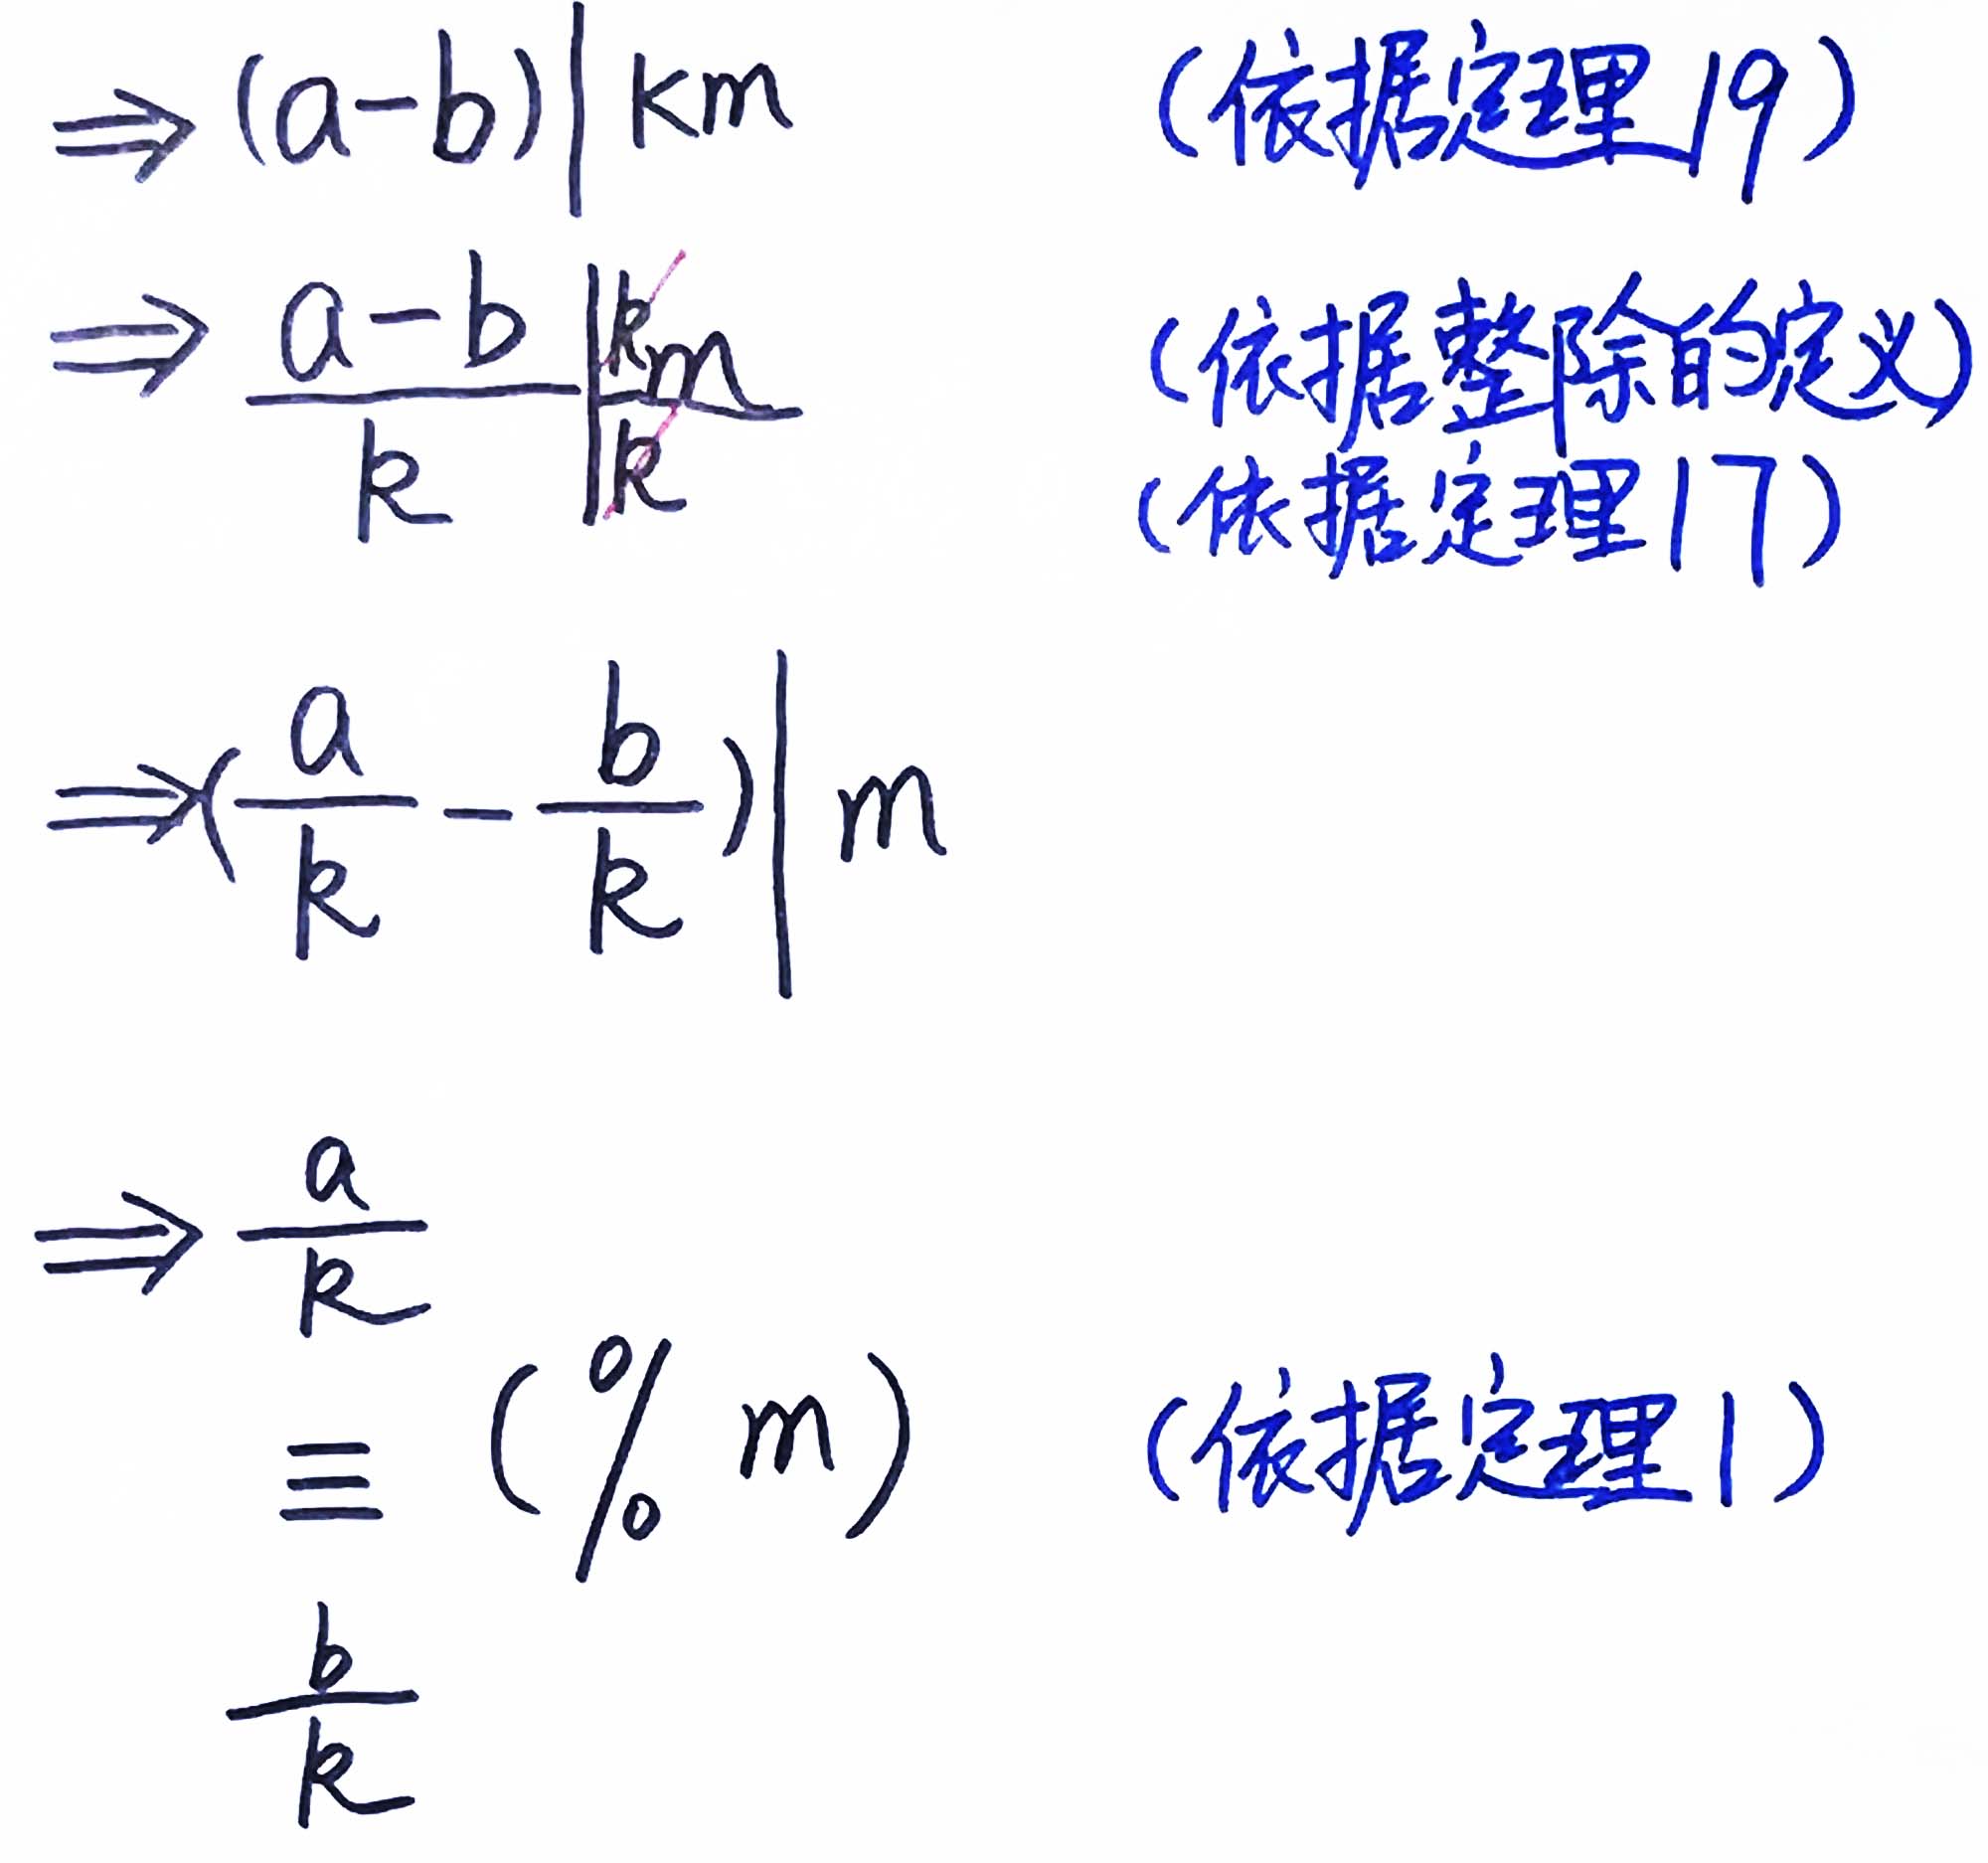 ⇒ (a-b) | km (依据定理19)
⇒ \frac{a-b}{k} | \frac{km}{k} (依据整除的定义)
(依据定理17)
⇒ (\frac{a}{k} - \frac{b}{k}) | m
⇒ \frac{a}{k}
≡ (% m) (依据定理1)
\frac{b}{k}